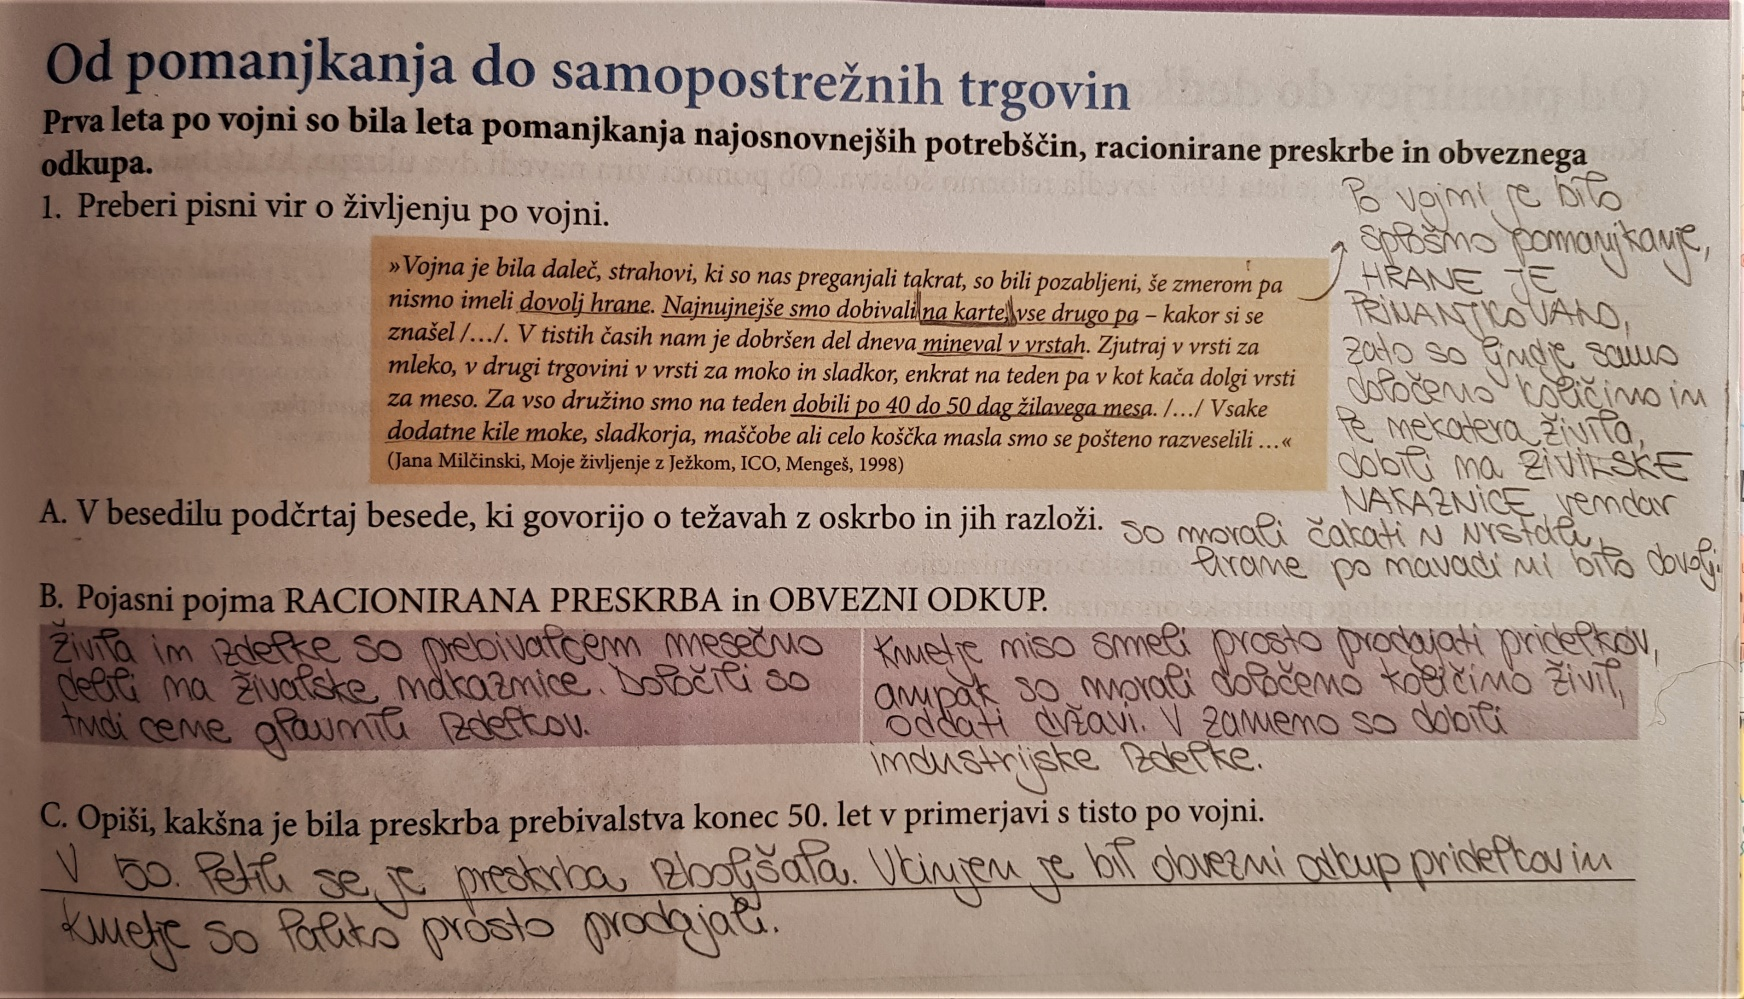 Od pomanjkanja do samopostrežnih trgovin
Prva leta po vojni so bila leta pomanjkanja najosnovnejših potrebščin, racionirane preskrbe in obveznega
odkupa.
1. Preberi pisni vir o življenju po vojni.
»Vojna je bila daleč, strahovi, ki so nas preganjali takrat, so bili pozabljeni, še zmerom pa
nismo imeli dovolj hrane. Najnujnejše smo dobivali na karte, vse drugo pa – kakor si se
znašel /.../. V tistih časih nam je dobršen del dneva mineval v vrstah. Zjutraj v vrsti za
mleko, v drugi trgovini v vrsti za moko in sladkor, enkrat na teden pa v kot kača dolgi vrsti
za meso. Za vso družino smo na teden dobili po 40 do 50 dag žilavega mesa. /.../ Vsake
dodatne kile moke, sladkorja, maščobe ali celo koščka masla smo se pošteno razveselili ...«
(Jana Milčinski, Moje življenje z Ježkom, ICO, Mengeš, 1998)
Po vojni je bilo
splošno pomanjkanje,
HRANE JE
PRIMANJKOVALO,
zato so ljudje samo
določeno količino in
le nekatera živila,
dobili na ŽIVILSKE
NAKAZNICE, vendar
so morali čakati v vrstah,
hrane po navadi ni bilo dovolj.
A. V besedilu podčrtaj besede, ki govorijo o težavah z oskrbo in jih razloži.
B. Pojasni pojma RACIONIRANA PRESKRBA in OBVEZNI ODKUP.
Živila in izdelke so prebivalcem mesečno
delili na živalske nakaznice. Določili so
tudi cene glavnih izdelkov.
Kmetje niso smeli prosto prodajati pridelkov,
ampak so morali določeno količino živil,
oddati državi. V zameno so dobili
industrijske izdelke.
C. Opiši, kakšna je bila preskrba prebivalstva konec 50. let v primerjavi s tisto po vojni.
V 50. letih se je preskrba izboljšala. Ukinjen je bil obvezni odkup pridelkov in
kmetje so lahko prosto prodajali.